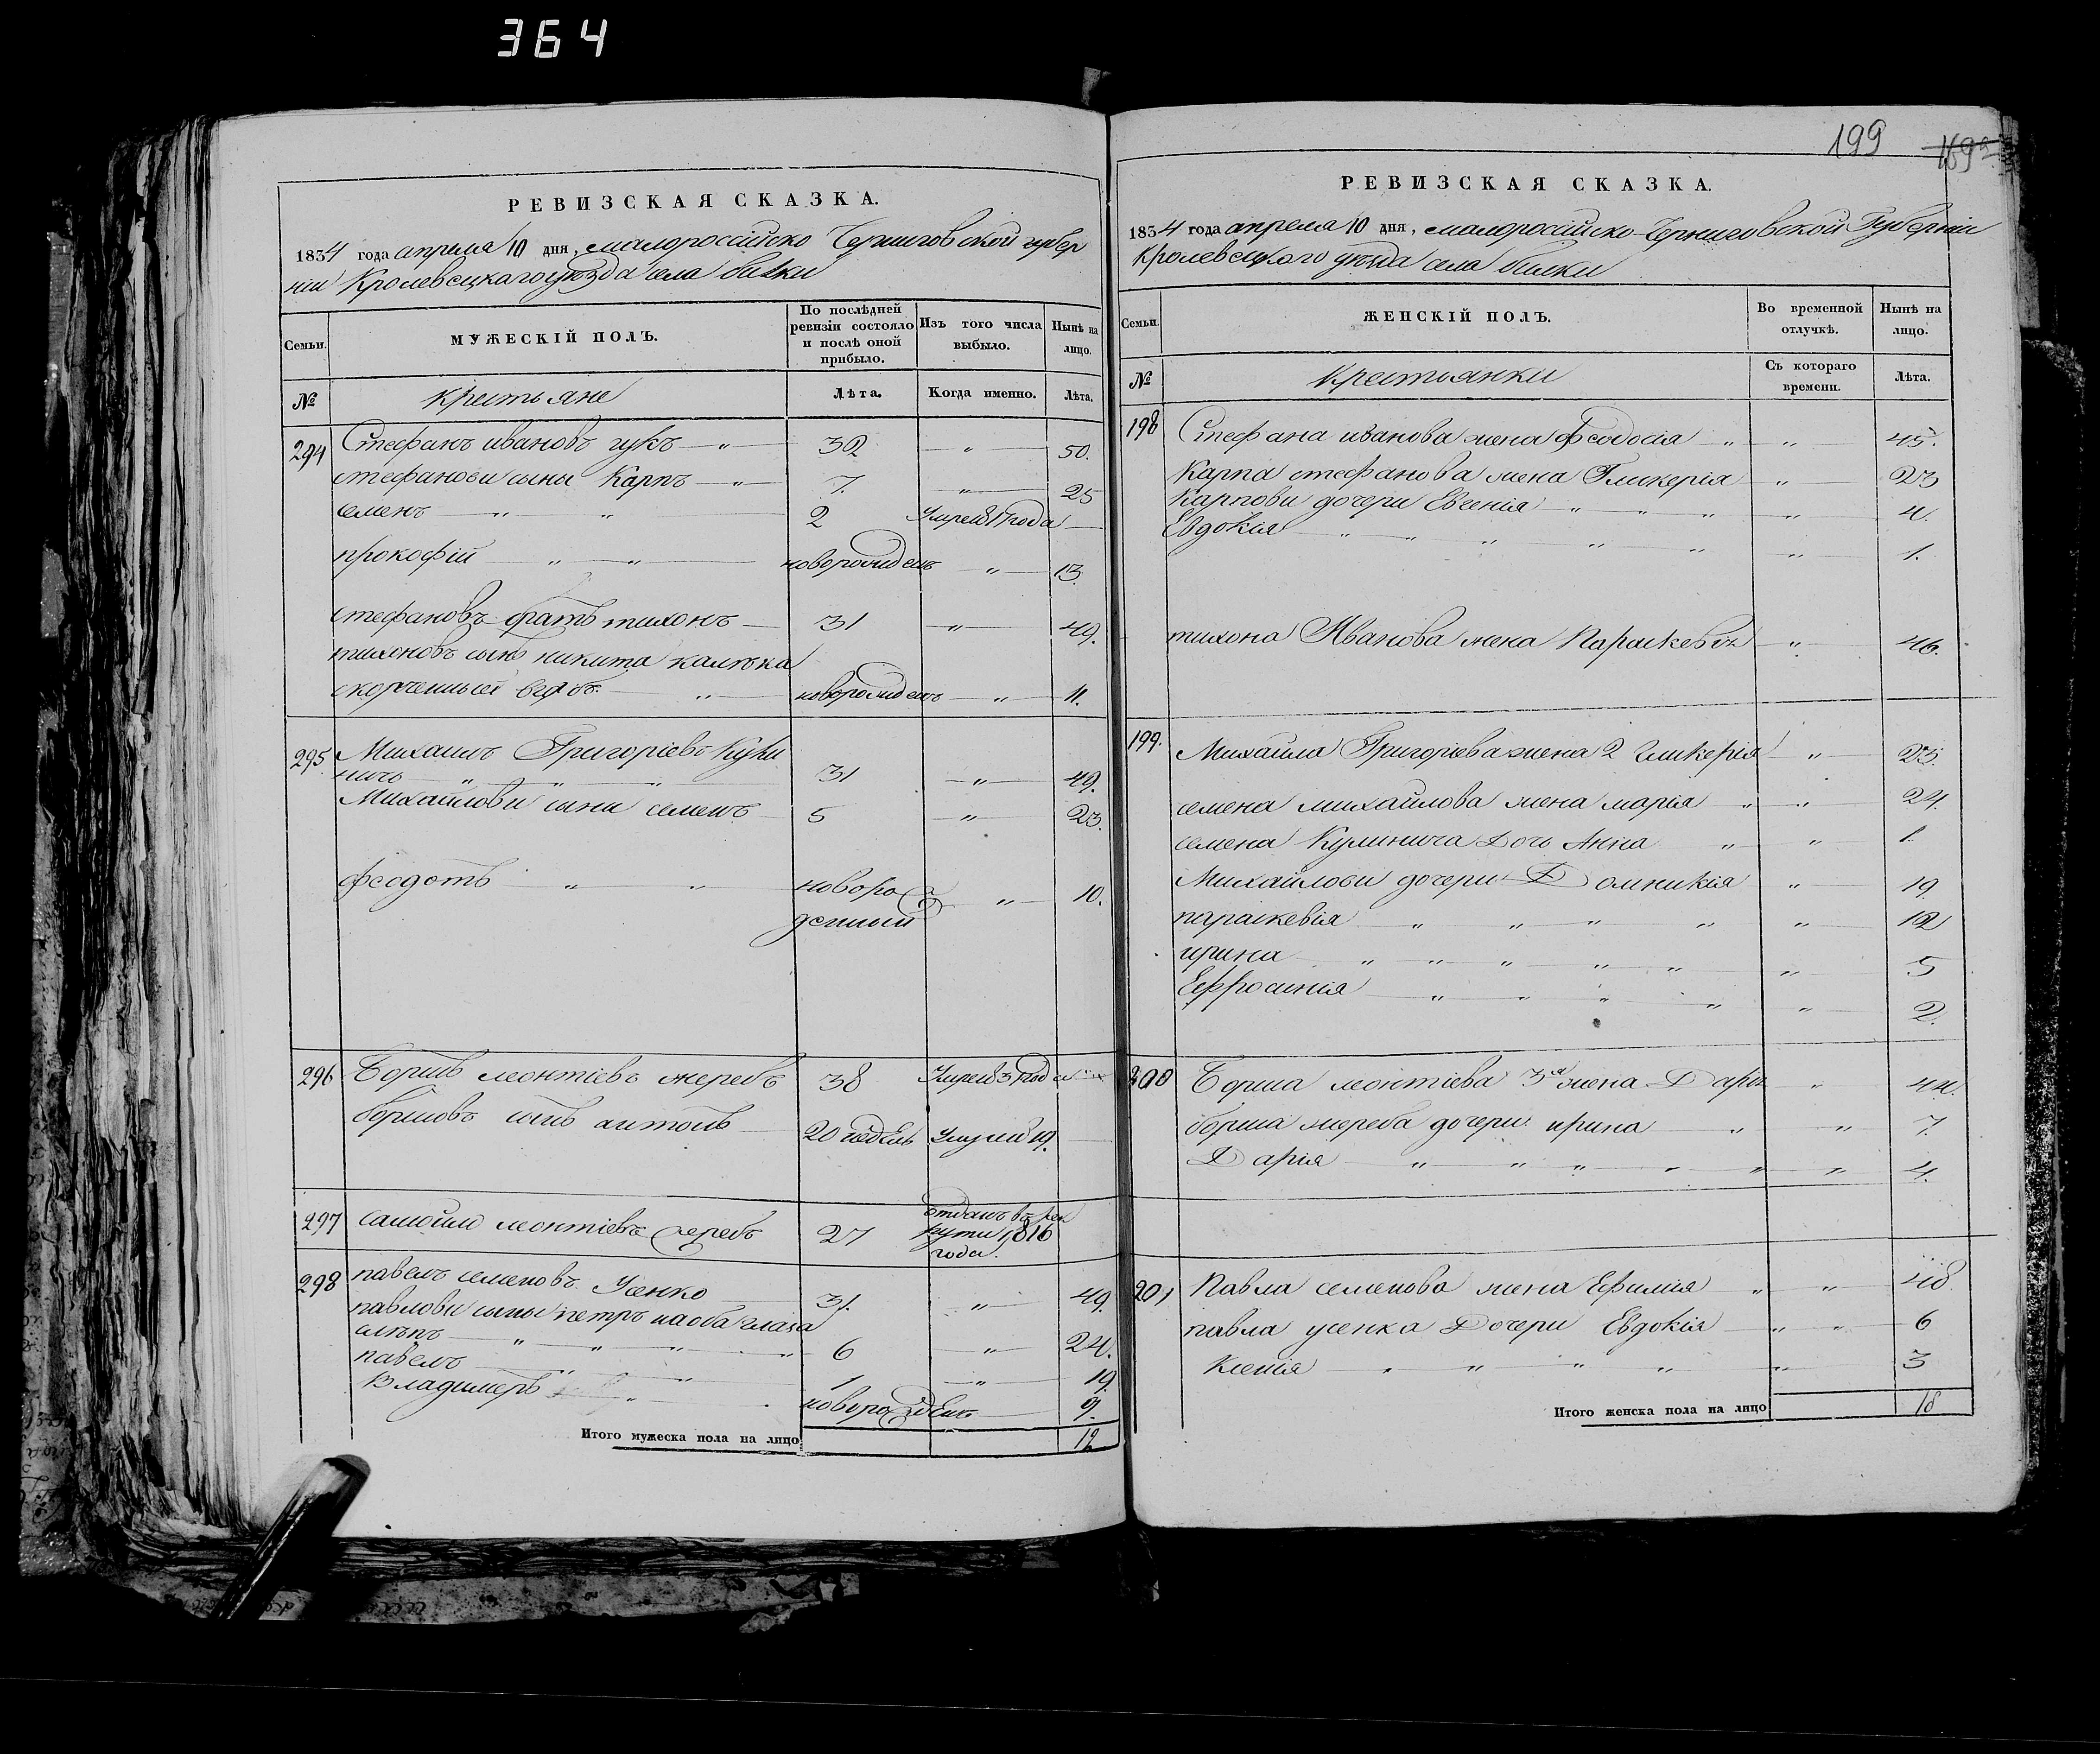 364
РЕВИЗСКАЯ СКАЗКА.
1834 года апреля 10 дня, малороссійско Черниговской губер
ніи Кролевецкаго уезда села билки
Семьи.
МУЖЕСКІЙ ПОЛЪ.
По послѣдней ревизіи состояло и послѣ оной прибыло.
Изъ того числа выбыло.
Нынѣ на лицо.
№
крестьяне
Лѣта.
Когда именно.
Лѣта.
294 Стефанъ ивановъ гукъ — „ — 32 — „ — 50.
стефанови сыны Карпъ — „ — 7. „ — 25
семенъ — „ „ — 2 —
прокофій — „ — „ — новорожденъ „ — 13.
стефановъ братъ тихонъ — 31 — „ — 49.
тихоновъ сынъ никита калѣка
скорченный „ — новорожденъ — „ — 11.
295. Михаилъ Григоріевъ Кули
ничъ „ „ „ 31 — „ — 49.
Михайлови сыни семенъ — 5 — „ — 23.
феодотъ „ „ новорож „ — 10.
денный
296 Борисъ леонтіевъ жеребъ 38
борисовъ сынъ антонъ — 20 недѣль умре 19. —
297 самойло леонтіевъ жеребъ 27 отданъ в рек
рути 1816
года.
298 павелъ семеновъ Усенко — 31. „ — 49.
павлови сыны петръ на оба глаза
слѣпъ — „ „ „ „ 6 „ — 24.
павелъ — „ „ 1 — „ — 19.
Владимеръ „ новорожденъ — 9.
Итого мужеска пола на лицо 12
199
РЕВИЗСКАЯ СКАЗКА.
1834 года апреля 10 дня, малороссійско-Черниговской Губерніи
Кролевецкого уезда села билки
Семьи.
ЖЕНСКІЙ ПОЛЪ.
Во временной отлучкѣ.
Нынѣ на лицо.
№
крестьянки
Съ котораго времени.
Лѣта.
198 Стефана иванова жена феодосія „ — „ — 45.
Карпа стефанова жена Гликерія — „ — 23
Карпови дочери Евгенія — „ „ „ „ — 4.
Евдокія — „ „ „ „ „ „ — 1.
тихона Иванова жена Параскевія — „ — 46.
199. Михайла Григоріева жена 2 гликерія — „ — 23.
семена михайлова жена марія „ „ — 24.
семена Кулинича Дочь Анна „ „ — 1.
Михайлови дочери Домникія „ — 19
параскевія — „ „ „ „ „ — 12
ирина — „ „ „ „ „ „ — 5
Ефросинія — „ „ „ „ „ — 2.
200 Бориса леонтіева 3я жена Дарія „ 44.
бориса жереба дочери ирина — „ „ 7.
Дарія — „ „ „ „ „ „ 4.
201 Павла семенова жена Ефимія „ „ — 48.
павла усенка Дочери Евдокія — „ „ — 6
Ксенія „ „ „ „ „ — 3
Итого женска пола на лицо 18